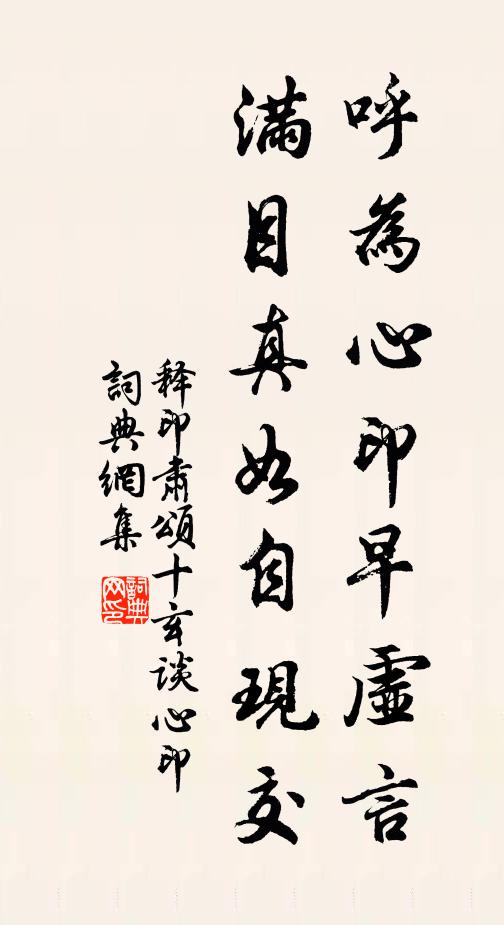 呼為心印早虛言
滿目真如自現交
释印肅頌十玄談心印
詞典網集
詞典
网印